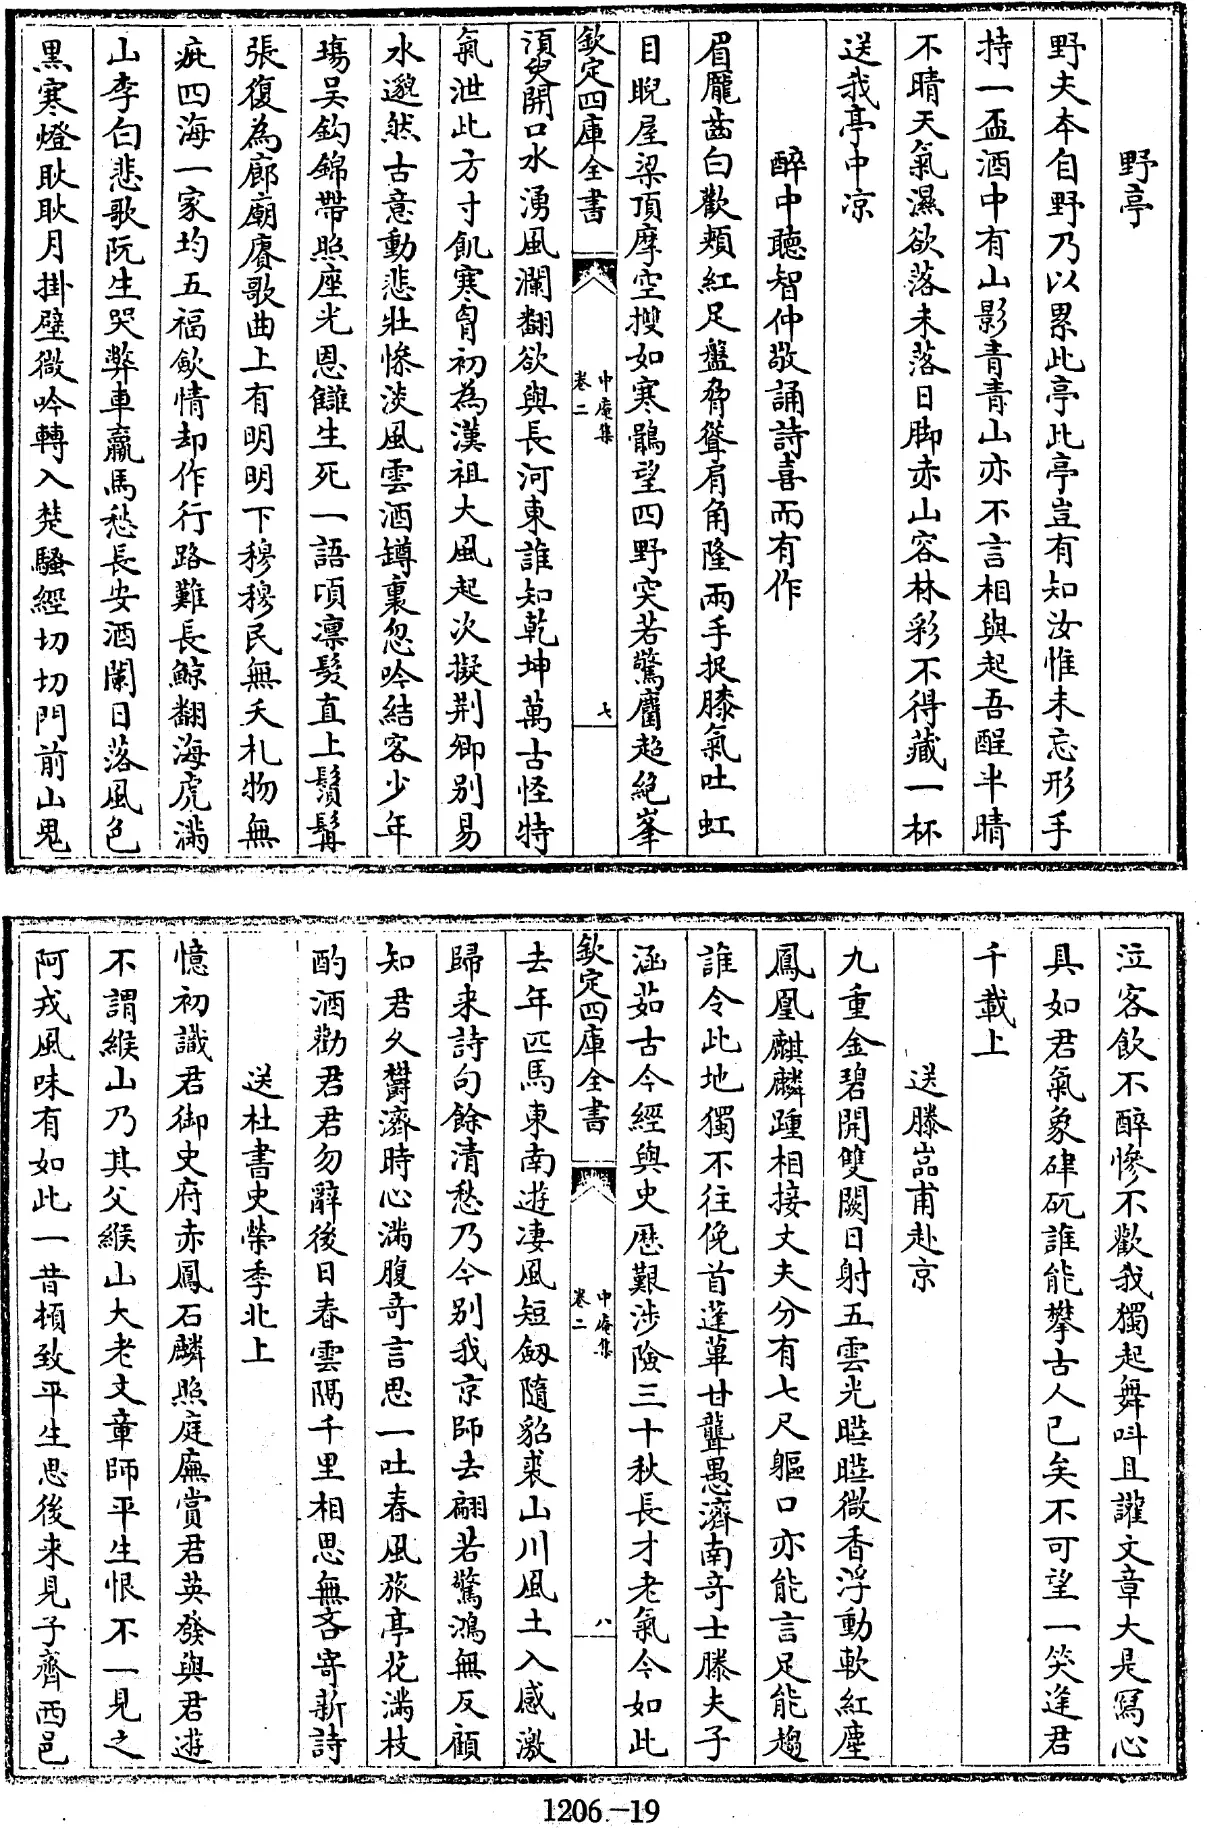 野亭
野夫本自野乃以累此亭此亭豈有知汝惟未忘形手
持一盃酒中有山影青青山亦不言相與起吾醒半晴
不晴天氣濕欲落未落日脚赤山容林彩不得藏一杯
送我亭中凉
醉中聽智仲敬誦詩喜而有作
眉龎齒白歡頰紅足盤脅聳肩角隆兩手捉膝氣吐虹
目睨屋梁頂摩空搜如寒鶻望四野突若驚麕趋絶峯
欽定四庫全書
中庵集
卷二
七
湏臾開口水湧風瀾翻欲與長河東誰知乾坤萬古怪特
氣泄此方寸飢寒胷初為漢祖大風起次擬荆卿别易
水邈然古意動悲壯慘淡風雲酒罇裏忽吟結客少年
塲吴鈎錦帶照座光恩讎生死一語頃凛髮直上鬚髯
張復為廊廟賡歌曲上有明明下穆穆民無夭札物無
疵四海一家均五福歛情却作行路難長鯨翻海虎滿
山李白悲歌阮生哭弊車羸馬愁長安酒闌日落風色
黑寒燈耿耿月掛壁微吟轉入楚騷經切切門前山鬼
泣客飲不醉慘不歡我獨起舞叫且讙文章大是寫心
具如君氣象硉矹誰能攀古人已矣不可望一笑逢君
千載上
送滕嵓甫赴京
九重金碧開雙闕日射五雲光曀曀微香浮動軟紅塵
鳳凰麒麟踵相接丈夫分有七尺軀口亦能言足能趨
誰令此地獨不往俛首蓬蓽甘聾愚濟南竒士滕夫子
涵茹古今經與史歴艱涉險三十秋長才老氣今如此
欽定四庫全書
中庵集
卷二
八
去年匹馬東南遊凄風短劔隨貂裘山川風土入感激
歸来詩句餘清愁乃今别我京師去翩若驚鴻無反顧
知君久欝濟時心滿腹竒言思一吐春風旅亭花滿枝
酌酒勸君君勿辭後日春雲隔千里相思無吝寄新詩
送杜書史榮季北上
憶初識君御史府赤鳳石麟照庭廡賞君英發與君遊
不謂緱山乃其父緱山大老文章師平生恨不一見之
阿戎風味有如此一昔頓致平生思後来見子齊西邑
1206-19